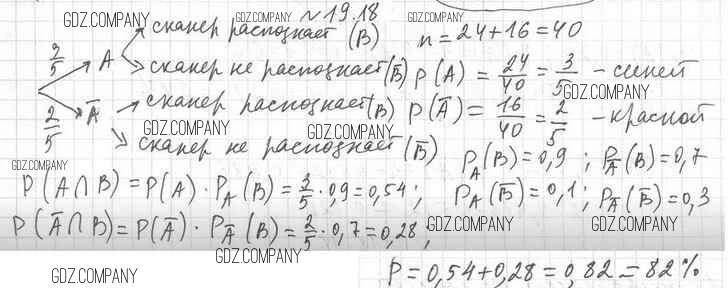 GDZ.COMPANY №19.18 GDZ.COMPANY
сканер распознает (B) n = 24+16 = 40
GDZ.COMPANY
3/5 A сканер не распознает (B̅) P(A) = 24/40 = 3/5 – синей
2/5 A̅ сканер распознает (B) P(A̅) = 16/40 = 2/5 – красной
GDZ.COMPANY GDZ.COMPANY GDZ.COMPANY
сканер не распознает (B̅)
GDZ.COMPANY P_A(B) = 0,9 ; P_A̅(B) = 0,7
P(A∩B) = P(A) · P_A(B) = 3/5 · 0,9 = 0,54 ; P_A(B̅) = 0,1 ; P_A̅(B̅) = 0,3
P(A̅∩B) = P(A̅) · P_A̅(B) = 2/5 · 0,7 = 0,28 ; GDZ.COMPANY GDZ.COMPANY
GDZ.COMPANY
GDZ.COMPANY P = 0,54 + 0,28 = 0,82 = 82% GDZ.COMPANY